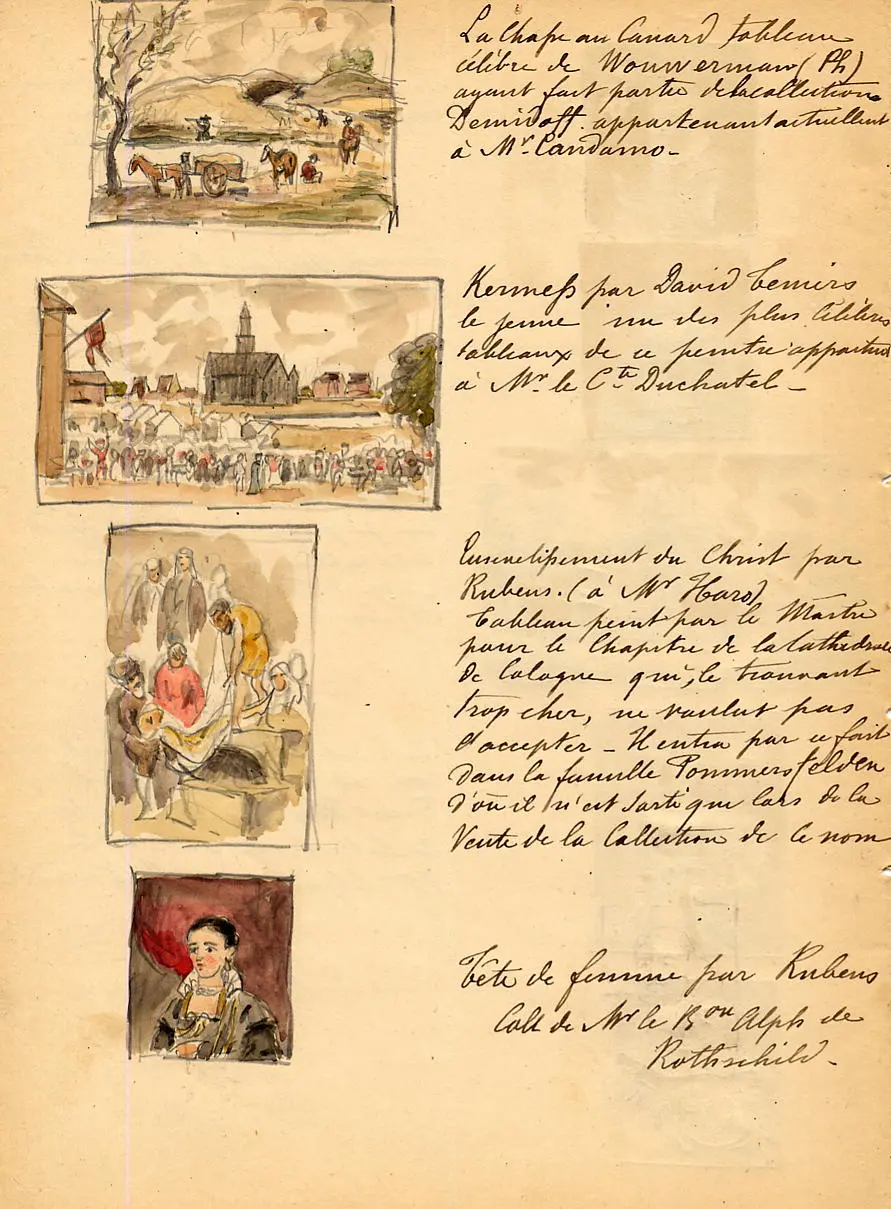 La Chasse au Canard tableau
célèbre de Wouwerman (Ph)
ayant fait partie de la collection
Demidoff. appartenant actuellent
à Mr. Candamo –
Kermess par David Teniers
le jeune un des plus célèbres
tableaux de ce peintre appartient
à Mr. le Cte Duchatel –
Ensevelissement du Christ par
Rubens. (à Mr Haro)
Tableau peint par le Maître
pour le Chapitre de la Cathedrale
de Cologne qui, le trouvant
trop cher, ne voulut pas
l'accepter – Il entra par ce fait
dans la famille Pommersfelden
d'où il n'est sorti que lors de la
Vente de la Collection de ce nom
Tête de femme par Rubens
Coll de Mr le Bon Alph de
Rothschild –